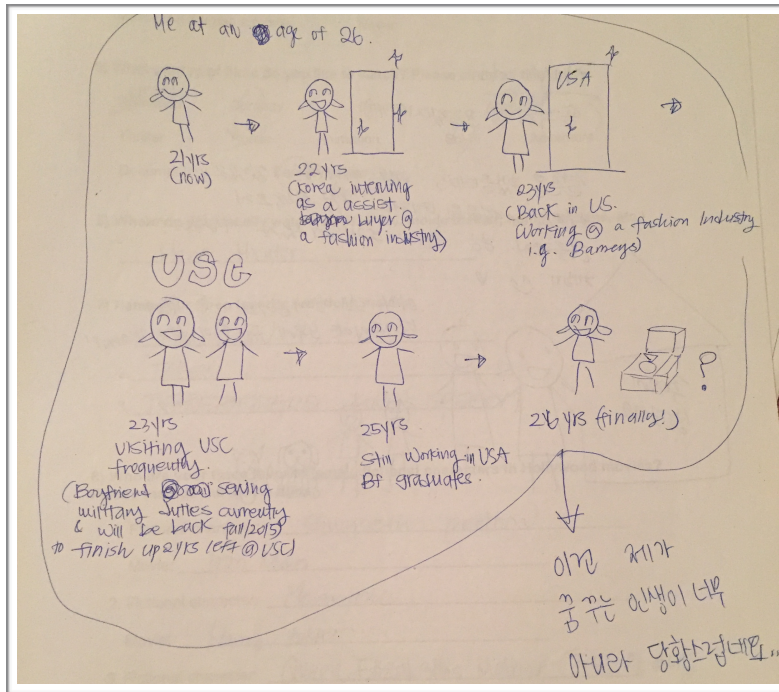 Me at an age of 26.
21yrs
(now)
22yrs
(Korea interning
as a assist.
buyer @
a fashion industry)
USA
23yrs
(Back in US.
Working @ a fashion industry
i.g. Barneys)
USC
23yrs
visiting USC
frequently.
(Boyfriend serving
military duties currently
& will be back fall/2015)
to finish up 2yrs left @ USC)
25yrs
Still working in USA
Bf graduates.
26 yrs (finally!)
?
이건 제가
꿈꾸는 인생이 너무
아니라 당황스럽네요..